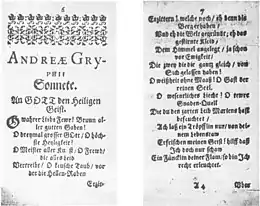 6
ANDREÆ GRY-
PHII
Sonnete.
An GOTT den Heiligen
Geist.
O wahrer Liebe Fewr! Brunn al-
ler gutten Gaben!
O dreymal grosser Gott, O höch-
ste Heyligkeit!
O Meister aller Kunst, O Frewd,
die alles leid
Vertreibt, O keusche Taub, vor
der die Hellen-Raben
Erzit-
7
Erzittern! welche noch, eh denn die
Berge erhaben,
Und eh die Welt gegründt, eh das
gestirnte Kleid,
Dem Himmel angelegt, ja schon
vor Ewigkeit,
Die zwey die dir gantz gleich, von
Sich gelassen haben!
O weißheit ohne Maaß! O Gast der
reinen Seel.
O wesentliches Liecht? O
Gnaden-Quell
Die du den zarten Leib Mariens hast
befeuchtet,
Ach laß ein Tröpflin nur, von dei-
nem Lebenstaw
Erfrischen meinen Geist! hilff daß
Ich doch nur schaw
Ein Fünckin deiner Flam, so bin Ich
recht erleuchtet.
A 4
Uber